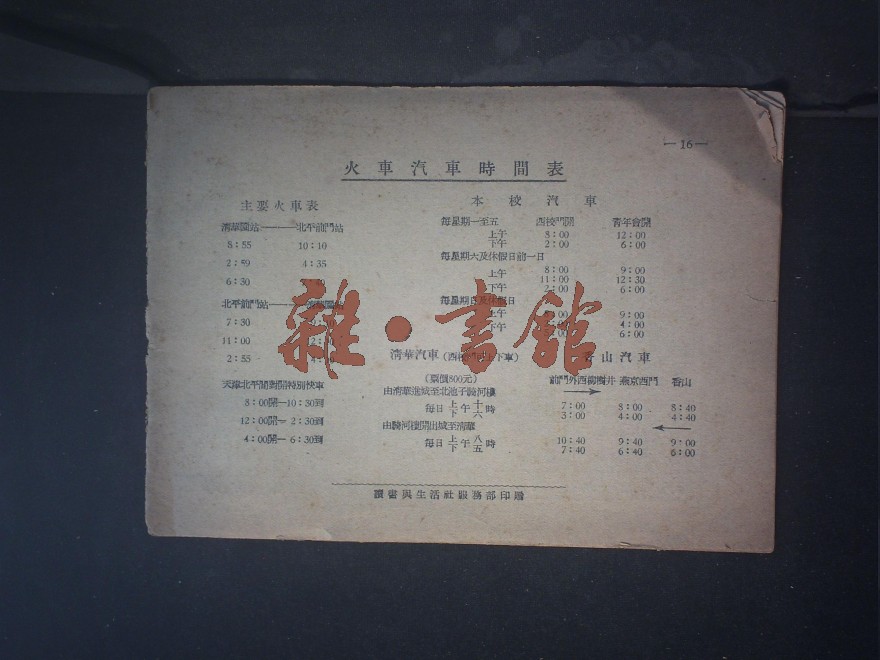 —16—
火車汽車時間表
主要火車表
清華園站———北平前門站
8:55 10:10
2:59 4:35
6:30
北平前門站———清華園站
7:30
11:00
2:55
天津北平間對開特別快車
8:00開—10:30到
12:00開— 2:30到
4:00開— 6:30到
本校汽車
每星期一至五 西校門開 青年會開
上午 8:00 12:00
下午 2:00 6:00
每星期六及休假日前一日
上午 8:00 9:00
11:00 12:30
下午 2:00 6:00
每星期日及休假日
上午 9:00
下午 4:00
6:00
清華汽車(西校門上下車)
(票價800元)
由清華進城至北池子騎河樓
每日上午十時
下午六時
由騎河樓開出城至清華
每日上午八時
下午五時
香山汽車
前門外西柳樹井 燕京西門 香山
7:00 8:00 8:40
3:00 4:00 4:40
10:40 9:40 9:00
7:40 6:40 6:00
讀書與生活社服務部印贈
雜·書館